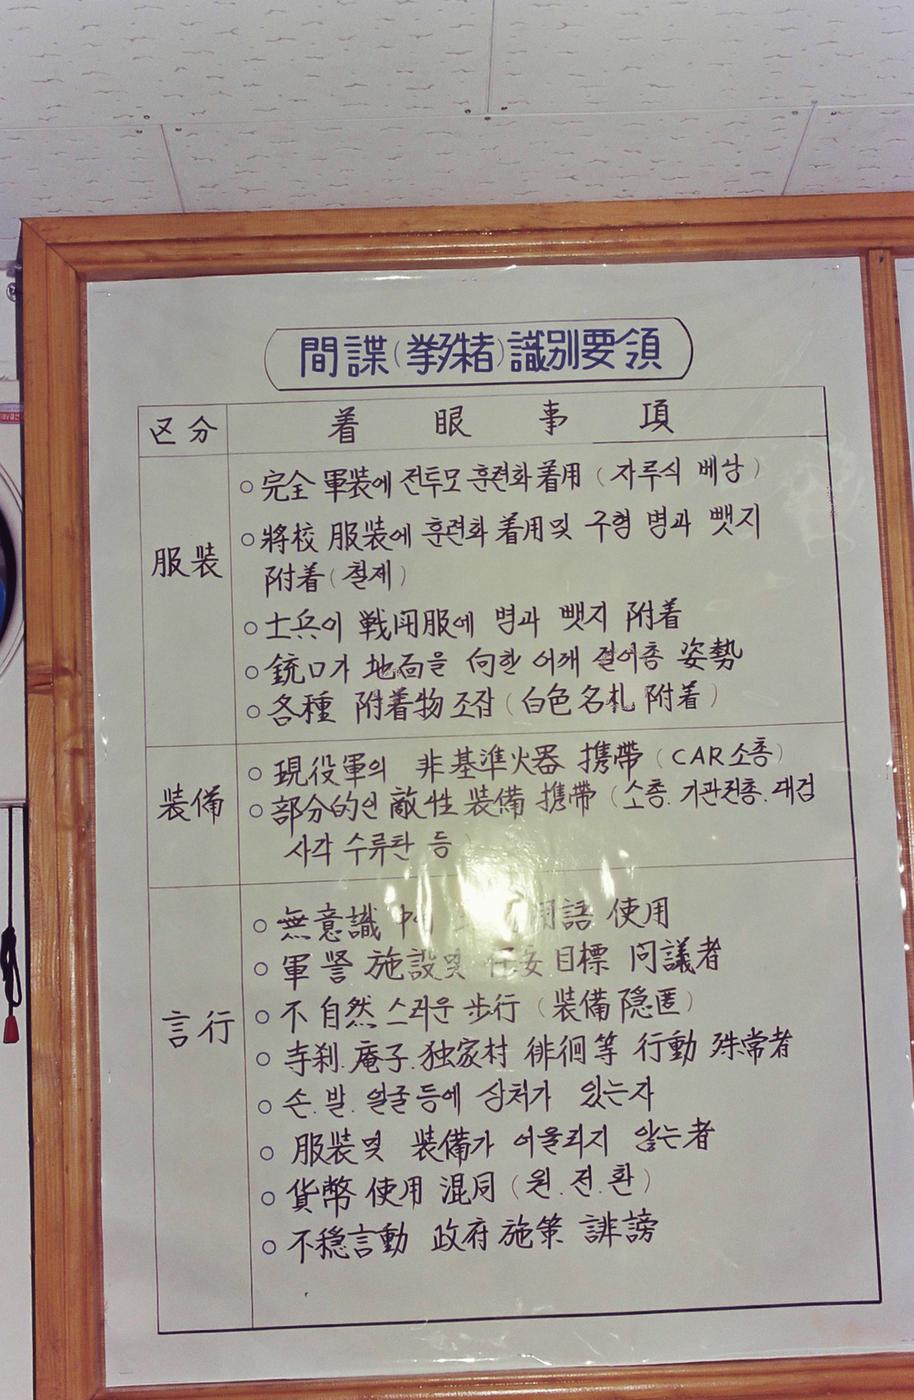 間諜(挙殊者)識別要領
区分 着眼事項
服裝
○完全 軍裝에 전투모 훈련화 着用 (자루식 배낭)
○將校 服裝에 훈련화 着用 및 구형 병과 뺏지
附着(철제)
○士兵이 戦闭服에 병과 뺏지 附着
○銃口가 地面을 向한 어깨 걸어총 姿勢
○各種 附着物 조잡 (白色 名札 附着)
裝備
○現役軍의 非基準火器 携帶 (CAR 소총)
○部分的인 敵性 裝備 携帶 (소총. 기관권총. 대검
사각 수류탄 등
言行
○無意識 中 用語 使用
○軍 警 施設 및 目標 问議者
○不自然스러운 步行 (装備 隐匿)
○寺刹. 庵子. 独家村 徘徊等 行動 殊常者
○손. 발. 얼굴등에 상처가 있는자
○服装 및 裝備가 어울리지 않는者
○貨幣 使用 混同 (원. 전. 환)
○不穏言動 政府 施策 誹謗